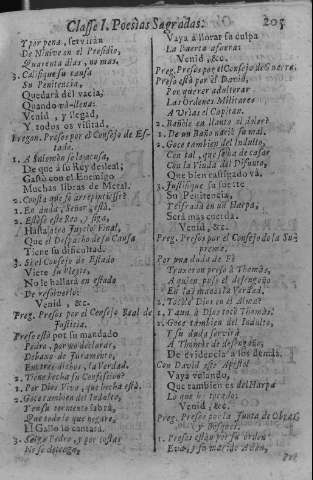 Classe I. Poesìas Sagradas. 205
Y por pena, servirán
De Ninive en el Presidio,
Quarenta dias, no mas.
3. Califique su causa
Su Penitencia,
Quedará del vacìa,
Quando llena:
Venid, y llegad,
Y todos os visitad.
Pregon. Presos por el Consejo de Es-
tado.
1. A Salomòn se le acusa,
De que à su Rey desleal;
Gastò con el Enemigo
Muchas libras de Metal.
2. Consta que se arrepintiesse?
1. En duda, Señor, està.
2. Estèse este Reo, y siga,
Hasta el otro Juyzio Final,
Que el Despacho de su Causa
Tiene su dificultad.
3. Si el Consejo de Estado
Viere su Pleyto,
No le hallarà en estado
De resolverlo:
Venid, &c.
Preg. Presos por el Consejo Real de
Justicia.
Preso està por su mandado
Pedro, por no declarar,
Debaxo de Juramento,
Entre dichos, la Verdad.
2. Tiene hecha su Confession?
1. Por Dios Vivo, que hecha està.
2. Goce tambien del Indulto,
Y en su tormento labrà,
Que todo lo que negare,
El Gallo lo cantarà.
3. Salga Pedro, y por costas
No se detenga,
Vaya à llorar su culpa
La Puerta afuera:
Venid, &c.
Preg. Presos por el Consejo de Guerra.
Preso està por el David,
Por querer adulterar
Las Ordenes Militares
A Urìas el Capitan.
2. Bañòse en llanto el dolor?
1. De un Baño nació su mal.
2. Goce tambien del Indulto,
Con tal, que se ha de casar
Con la Viuda del Difunto,
Que bien castigado và.
3. Justifique su suerte
Su Penitencia,
Y cifrada en su Harpa,
Serà mas cuerda.
Venid, &c.
Preg. Presos por el Consejo de la Su-
prema.
Por una duda de Fè
Traxeron preso à Thomàs,
A quien puso el desengaño
En las manos la Verdad.
2. Tocòle Dios en el Alma?
1. Y aun, à Dios tocò Thomàs.
2. Goce tambien del Indulto,
Y su duda servirà
A Thomàs de desengaño,
De evidencia à los demàs.
Con David este Apostol
Vaya volando,
Que tambien es del Harpa
Lo que ha tocado:
Venid, &c.
Preg. Presos por la Junta de Obras,
y Bosques.
1. Presos estàn por su orden
Eva, y su marido Adàn,